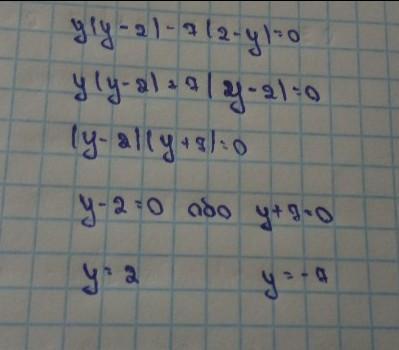 y(y-2)-7(2-y)=0
y(y-2)+7(y-2)=0
(y-2)(y+7)=0
y-2=0 або y+7=0
y=2 y=-7